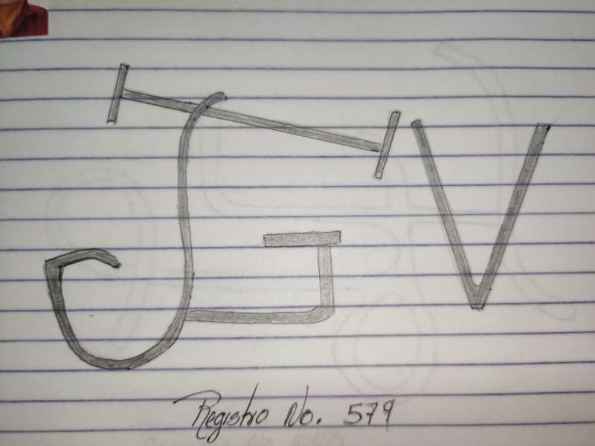 JGV
Registro No. 579